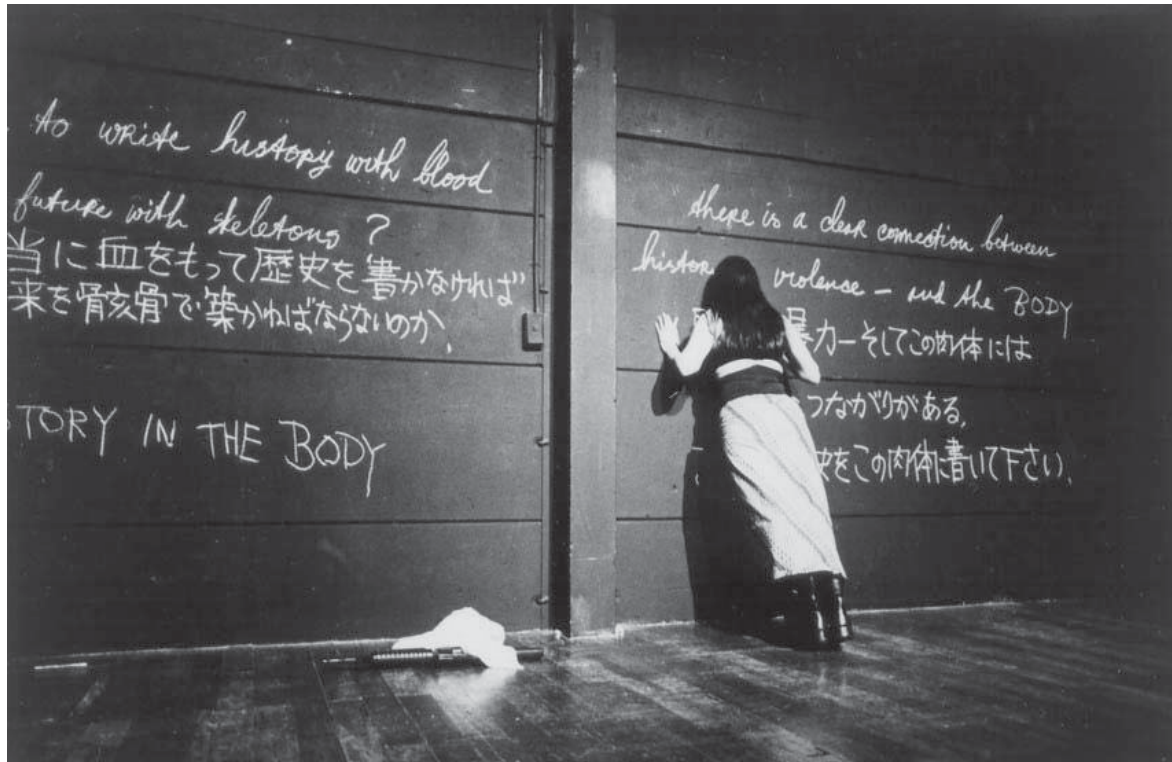 to write history with blood
future with skeletons ?
当に血をもって歴史を書かなければ
来を骨亥骨で築かねばならないのか、
TORY IN THE BODY
there is a clear connection between
histor violence – and the BODY
暴力ーそしてこの肉体には
つながりがある,
史をこの肉体に書いて下さい,